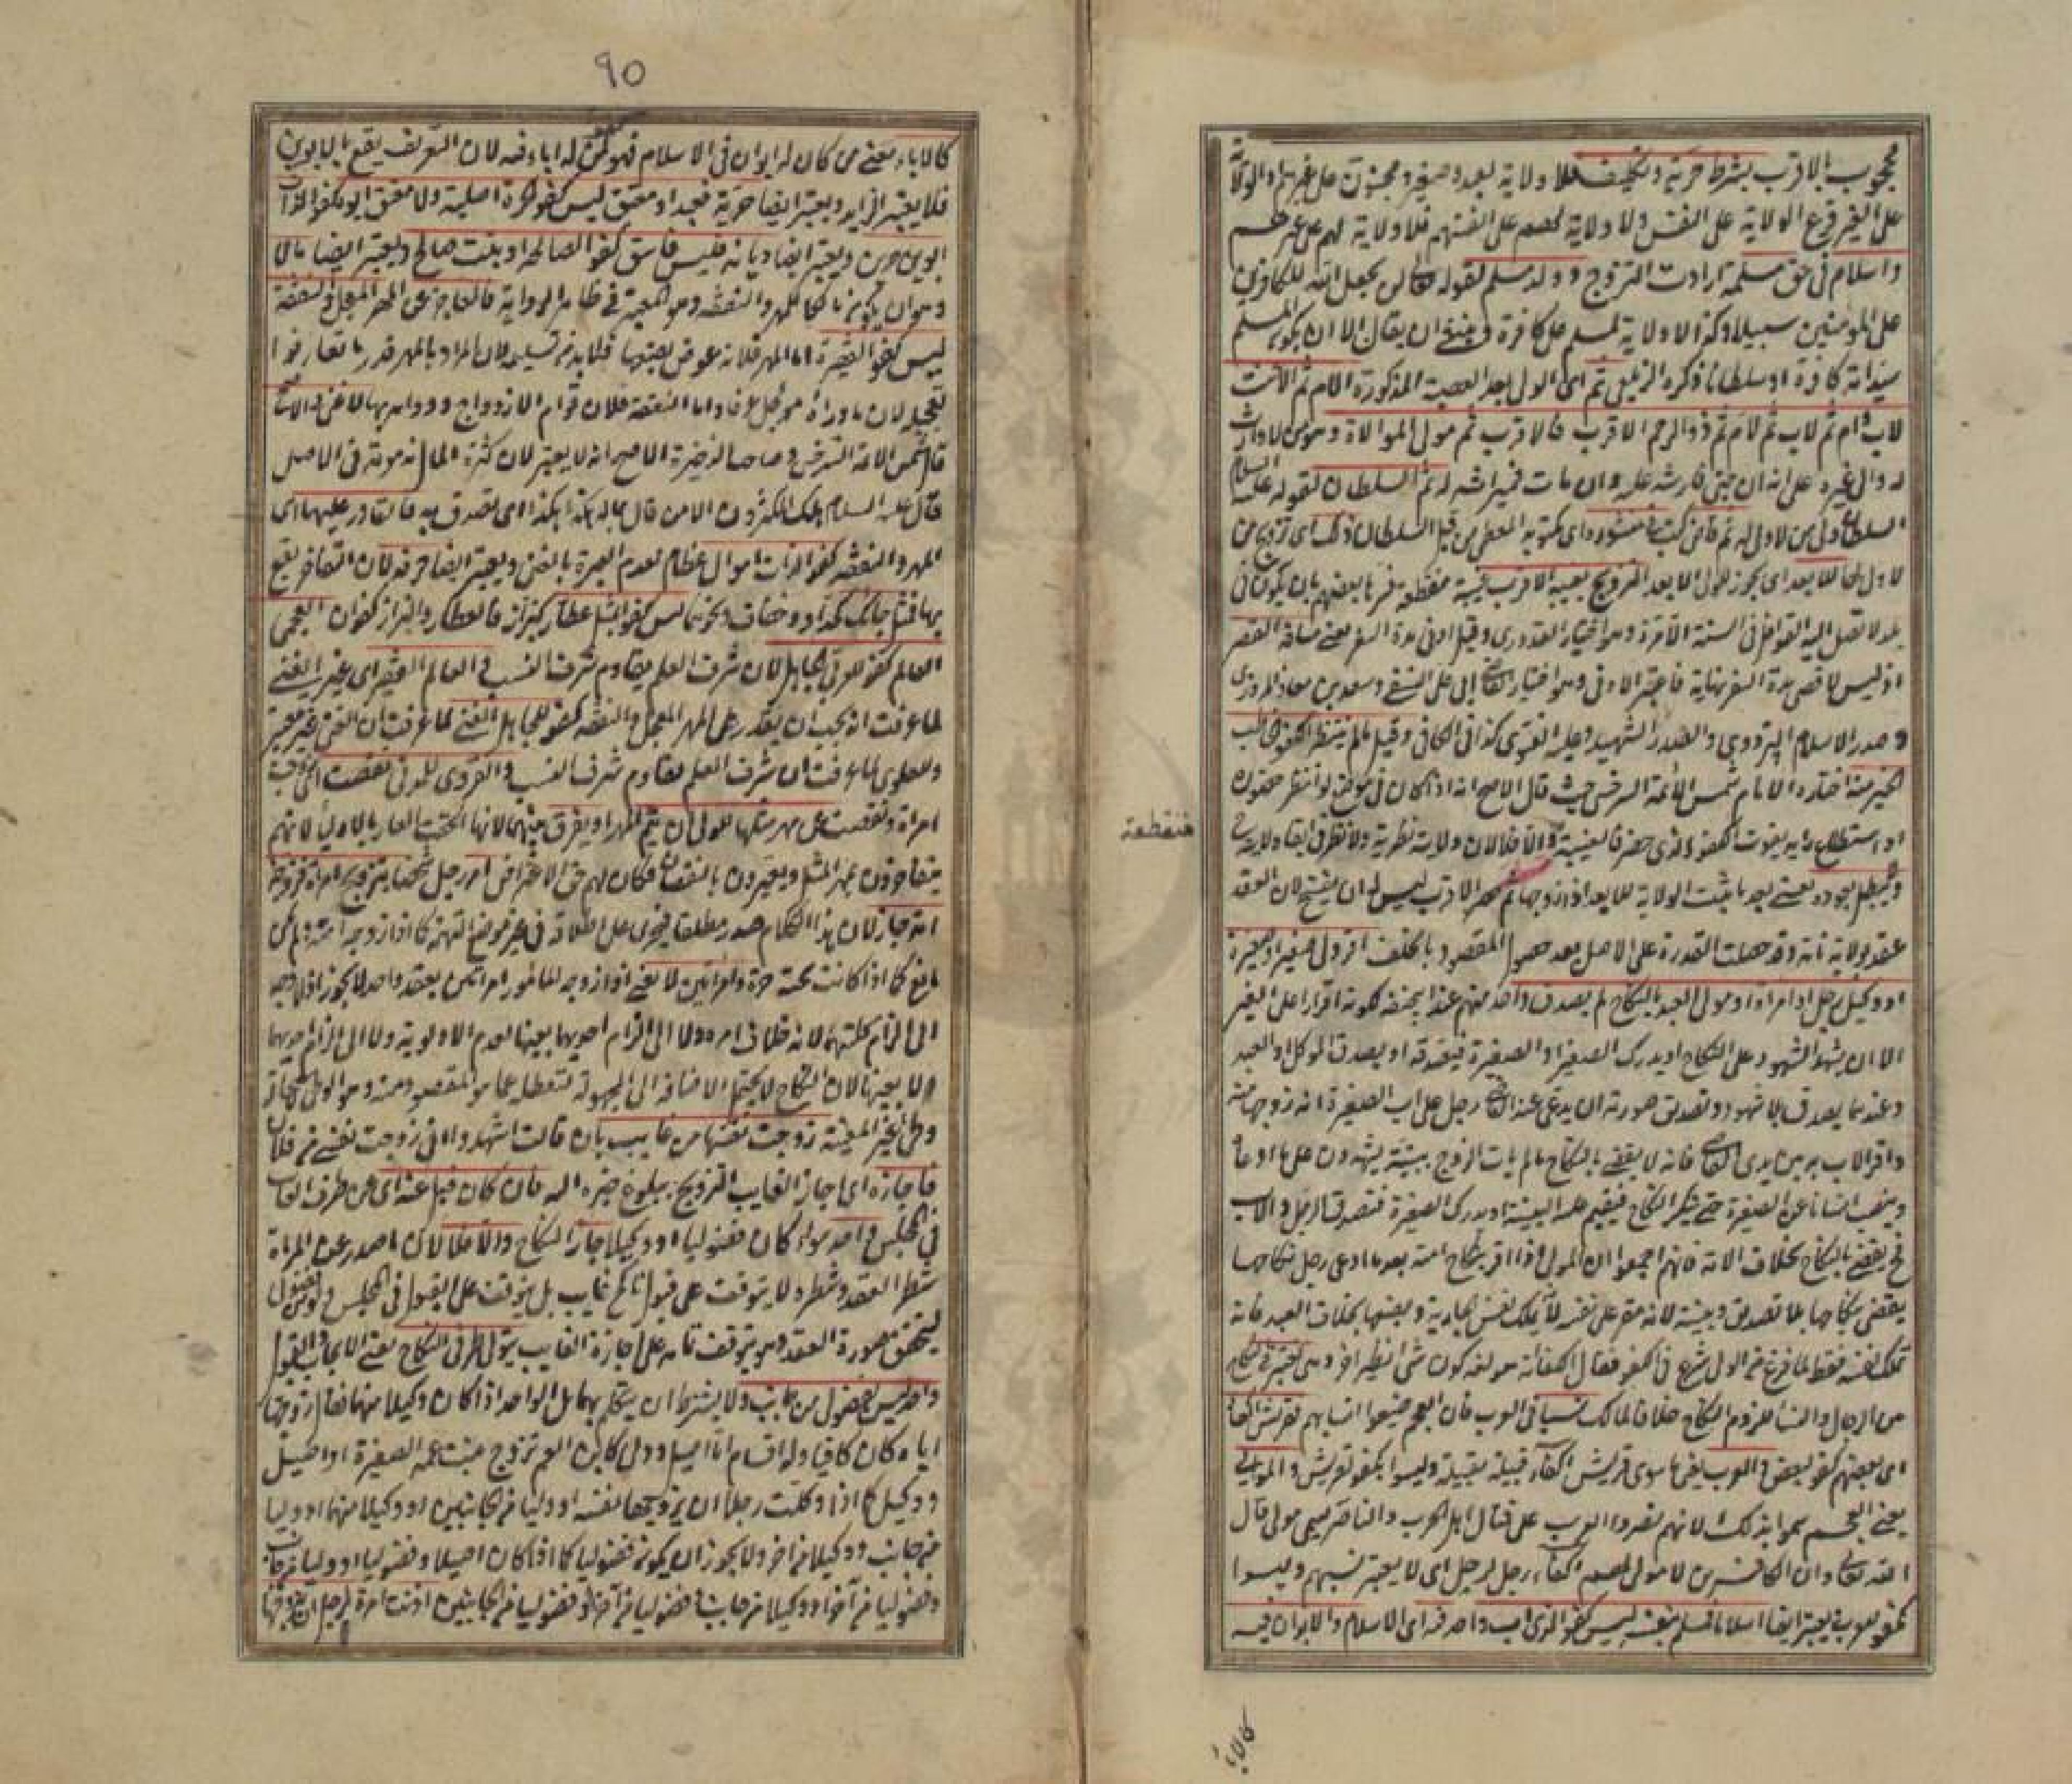 محجوب بالاقرب بشرط حرية وتكليف فلا ولاية لعبد وصغير ومجنون على غيرهم اذ الولاية
على الغير فرع الولاية على النفس ولا ولاية لهم على انفسهم فلا ولاية لهم على غيرهم
واسلام في حق مسلمة ارادت التزوج وولد مسلم لقوله تعالى لن يجعل الله للكافرين
على المؤمنين سبيلا وكذا لا ولاية لمسلم على كافرة وينبغي ان يقال الا ان يكون المسلم
سيد امة كافرة او سلطانا ذكره الزيلعي ثم اى الولى بعد العصبة المذكورة الام ثم الاخت
لاب وام ثم لاب ثم لام ثم ذو الرحم الاقرب فالاقرب ثم مولى الموالاة وهو من لا وارث
له والى غيره على انه ان جنى فارشه عليه وان مات فميراثه له ثم السلطان لقوله عليه السلام
السلطان ولى من لا ولى له ثم قاض كتب في منشوره اى مكتوبه المعطى من قبل السلطان ذلك اى تزويج من
لا ولى له للابعد اى يجوز للولى الابعد التزويج بغيبة الاقرب غيبة منقطعة فسرها بعضهم بان يكون في
بلد لا تصل اليه القوافل في السنة الا مرة وهو اختيار القدورى وقيل ادنى مدة السفر يعنى مسافة القصر
اذ ليس لاقصى مدة السفر نهاية فاعتبر الادنى وهو اختيار القاضى ابى على النسفى وسعد بن معاذ المروزى
وصدر الاسلام البزدوى والصدر الشهيد وعليه الفتوى كذا في الكافى وقيل ما لم ينتظر الكفو الخاطب
الخبر منه اختاره الامام شمس الائمة السرخسى حيث قال الاصح انه اذا كان في موضع لو انتظر حضوره
او استطلع رايه يفوت الكفو الذى حضر فالغيبة منقطعة
منقطعة
والا فلا لان ولايته نظرية ولا نظر في ابقاء ولايته
ولا يبطل بعوده يعنى بعد ما ثبت الولاية للابعد اذا زوجها ثم حضر الاقرب ليس له ان يفسخ لان العقد
عقد بولاية تامة وقد حصلت القدرة على الاصل بعد حصول المقصود بالخلف اقر ولى صغير او صغيرة
او وكيل رجل او امراة او مولى العبد بالنكاح لم يصدق واحد منهم عند ابى حنيفة لكونه اقرارا على الغير
الا ان يشهد الشهود على النكاح او يدرك الصغير او الصغيرة فيصدقه او يصدق الموكل او العبد
وعندهما يصدق بلا شهود وتصديق صورته ان يدعى عند القاضى رجل على اب الصغيرة انه زوجها منه
واقر الاب به بين يدى القاضى فانه لا يقضى بالنكاح ما لم يات الزوج ببينة يشهدون على ما ادعاه
وينصب انسانا عن الصغيرة حتى ينكر النكاح فيقيم عليه البينة او يدرك الصغيرة فتصدق الرجل والاب
فح يقضى بالنكاح بخلاف الامة فانهم اجمعوا ان المولى اذا اقر بنكاح امته بعد ما ادعى رجل نكاحها
يقضى بنكاحها بلا تصديق وبينة لانه مقر على نفسه لانه يملك نفس الجارية وبضعها بخلاف العبد فانه
تملك نفسه فقط لما فرغ من الولى شرع في الكفو فقال الكفاءة هو لغة كون شئ نظير اخر وهى تعتبر في النكاح
من الرجال والنساء للزوم النكاح خلافا لمالك نسبا في العرب فان العجم ضيعوا انسابهم فقريش اكفاء
اى بعضهم كفو لبعض والعرب يعنى ما سوى قريش اكفاء قبيلة بقبيلة وليسوا بكفو لقريش والموالى
يعنى العجم سموا بذلك لانهم نصروا العرب على قتال اهل الحرب والناصر يسمى مولى قال
الله تعالى وان الكافرين لا مولى لهم اكفاء رجل لرجل اى لا يعتبر نسبهم وليسوا
بكفو للعرب ويعتبر ايضا اسلاما فمسلم بنفسه ليس كفو الذى اب واحد فيه اى الاسلام والابوان فيه
كالاباء
٩٥
كالاباء يعنى من كان له ابوان في الاسلام فهو كمن له اباء فيه لان التعريف يقع بالابوين
فلا يعتبر الزايد ويعتبر ايضا حرية فعبد او معتق ليس كفو لحرة اصلية ولا معتق ابوه كفو لذات
ابوين حرين ويعتبر ايضا ديانة فليس فاسق كفو الصالحة او بنت صالح ويعتبر ايضا مالا
وهو ان يكون مالكا للمهر والنفقة وهو المعتبر في ظاهر الرواية فالعاجز عن المهر المعجل والنفقة
ليس كفو الفقيرة اما المهر فلانه عوض بضعها فلابد من تسليمه لان المراد بالمهر قدر ما تعارفوا
تعجيله لان ما وراءه مؤجل عرفا واما النفقة فلان قوام الازدواج ودوامه بها لا غنى والا
قال شمس الائمة السرخسى وصاحب الذخيرة الاصح انه لا يعتبر لان كثرة المال مذمومة في الاصل
قال عليه السلام هلك المكثرون الا من قال بماله هكذا هكذا اى تصدق به فالقادر عليهما اى
المهر والنفقة كفو لذات اموال عظام لعدم العبرة بالغنى ويعتبر ايضا حرفة لان التفاخر يقع
بها فمثل حائك كحداد وخفاف ونحوهما ليس كفوا لمثل عطار كبزاز فالعطار والبزاز كفوان العجمى
العالم كفو للعربى الجاهل لان شرف العلم يقاوم شرف النسب والعالم الفقير اى غير الغنى
لما عرفت انه يجب ان يقدر على المهر المعجل والنفقة كفو للجاهل الغنى لما عرفت ان الغنى غير معتبر
وللعلوى لما عرفت ان شرف العلم يقاوم شرف النسب والقروى للمدنى نقصت اى زوجت
امراة ونقصت عن مهر مثلها للولى ان يتم المهر او يفرق بينهما لانها الحقت العار بالاولياء لانهم
يتفاخرون بمهر المثل ويعيرون بالنقصان فكان لهم حق الاعتراض امر رجل شخصا بتزويج امراة فزوجه
امة جاز لان هذا الكلام صدر مطلقا فيجرى على اطلاقه في غير موضع التهمة كما اذا زوجه امته ولم يكن
مانع كما اذا كانت تحته حرة وامراتين لا يعنى اذا زوجه المأمور امراتين بعقد واحد لا يجوز اذ لا وجه
الى الزام كلتيهما لانه خلاف امره ولا الى الزام احديهما بعينها لعدم الاولوية ولا الى الزام احديهما
لا بعينها لان النكاح لا يحتمل الاضافة الى المجهولة لتعطله عما هو المقصود منه وهو
وطئ غير المعينة زوجت نفسها من غايب بان قالت اشهدوا انى زوجت نفسى من فلان
فاجازه اى اجاز الغايب التزويج ببلوغ خبره اليه فان كان قبل عنه اى عن طرف الغايب
في المجلس واحد سواء كان فضوليا او وكيلا جاز النكاح والا فلا لان ما صدر عن المراة
شطر العقد وشطره لا يتوقف على قبول ناكح غايب بل يتوقف على القبول في المجلس ولو من فضولى
ليتحقق صورة العقد وهو يتوقف تمامه على اجازة الغايب يتولى طرفى النكاح يعنى الايجاب والقبول
واحد ليس بفضولى من جانب ولا يشترط ان يتكلم بهما بل الواحد اذا كان وكيلا منهما فقال زوجتها
اياه كان كافيا وله اقسام اما اصيل وولى كابن العم تزوج بنت عمه الصغيرة او اصيل
ووكيل كما اذا وكلت رجلا ان يزوجها نفسه او وليا من الجانبين او وكيلا منهما او وليا
من جانب ووكيلا من اخر ولا يجوز ان يكون فضوليا كما اذا كان اصيلا وفضوليا او وليا من جانب
وفضوليا من آخر او وكيلا من جانب فضوليا من آخر او فضوليا من الجانبين اذنت امرة لرجل ان يزوجها